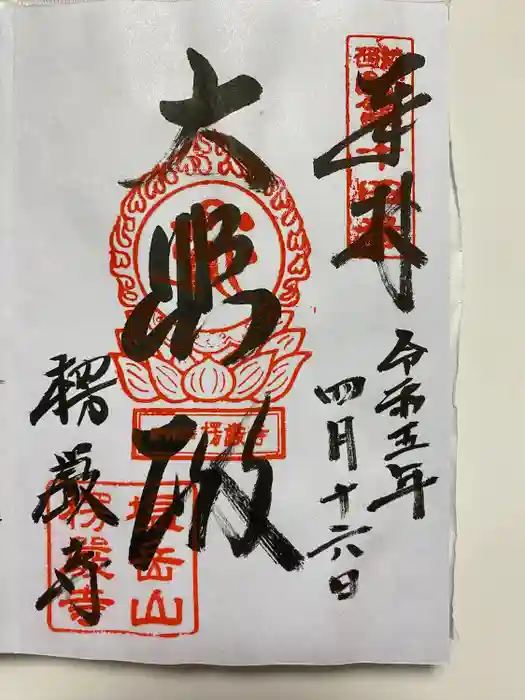 奉拝
令和五年
四月十六日
大悲殿
楞嚴寺
楞厳寺
塩岳山
楞嚴寺